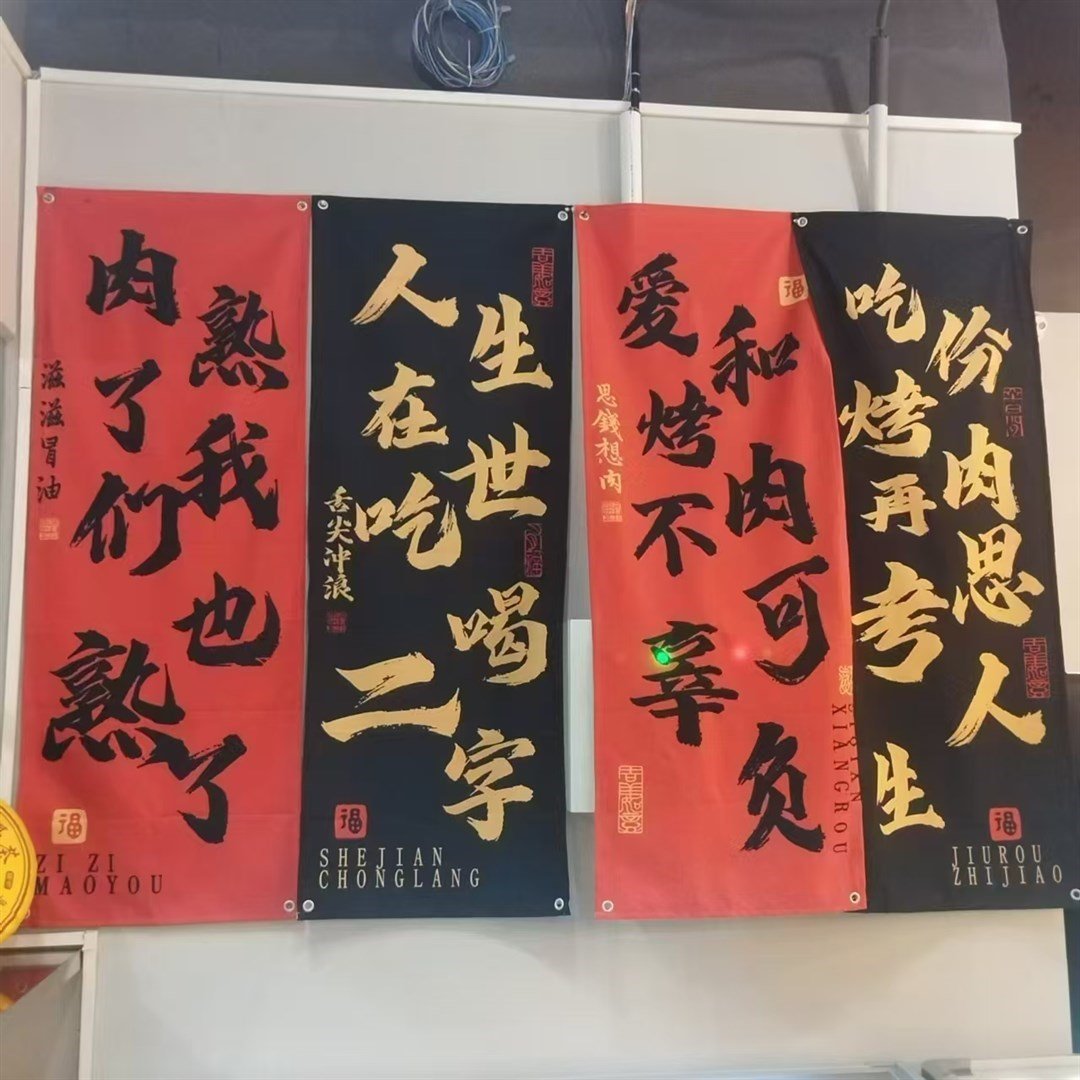 肉熟了我们也熟了
滋滋冒油
福
ZI ZI
MAOYOU
人生在世吃喝二字
舌尖冲浪
福
SHEJIAN
CHONGLANG
爱和烤肉不可辜负
思錢想肉
福
SIQIAN
XIANGROU
吃份烤肉再思考人生
福
JIUROU
ZHIJIAO